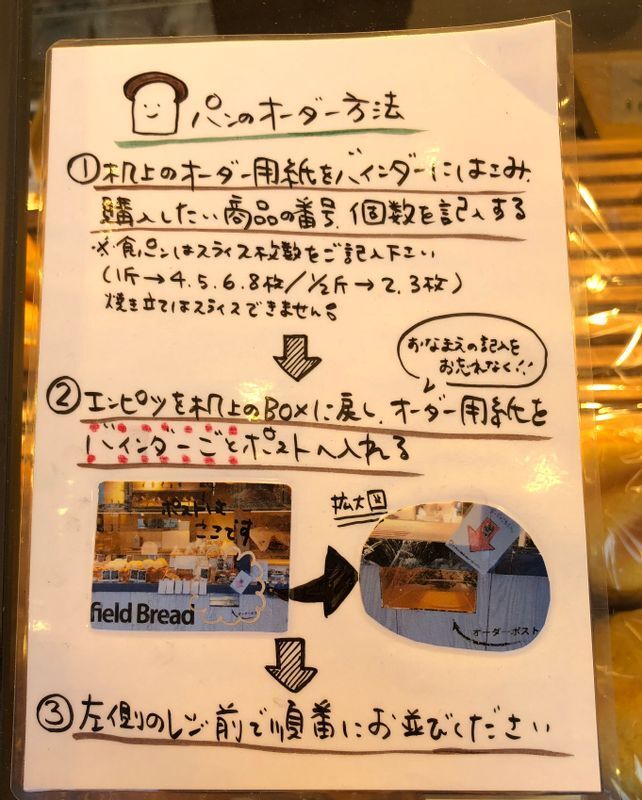 パンのオーダー方法
①机上のオーダー用紙をバインダーにはさみ、
購入したい商品の番号、個数を記入する
※食パンはスライス枚数をご記入下さい
(1斤→4.5.6.8枚/½斤→2.3枚)
焼き立てはスライスできません。
おなまえの記入を
お忘れなく!!
②エンピツを机上のBOXに戻し、オーダー用紙を
バインダーごとポストへ入れる
拡大図
ポストは
ここです
field Bread
オーダーポスト
③左側のレジ前で順番にお並びください